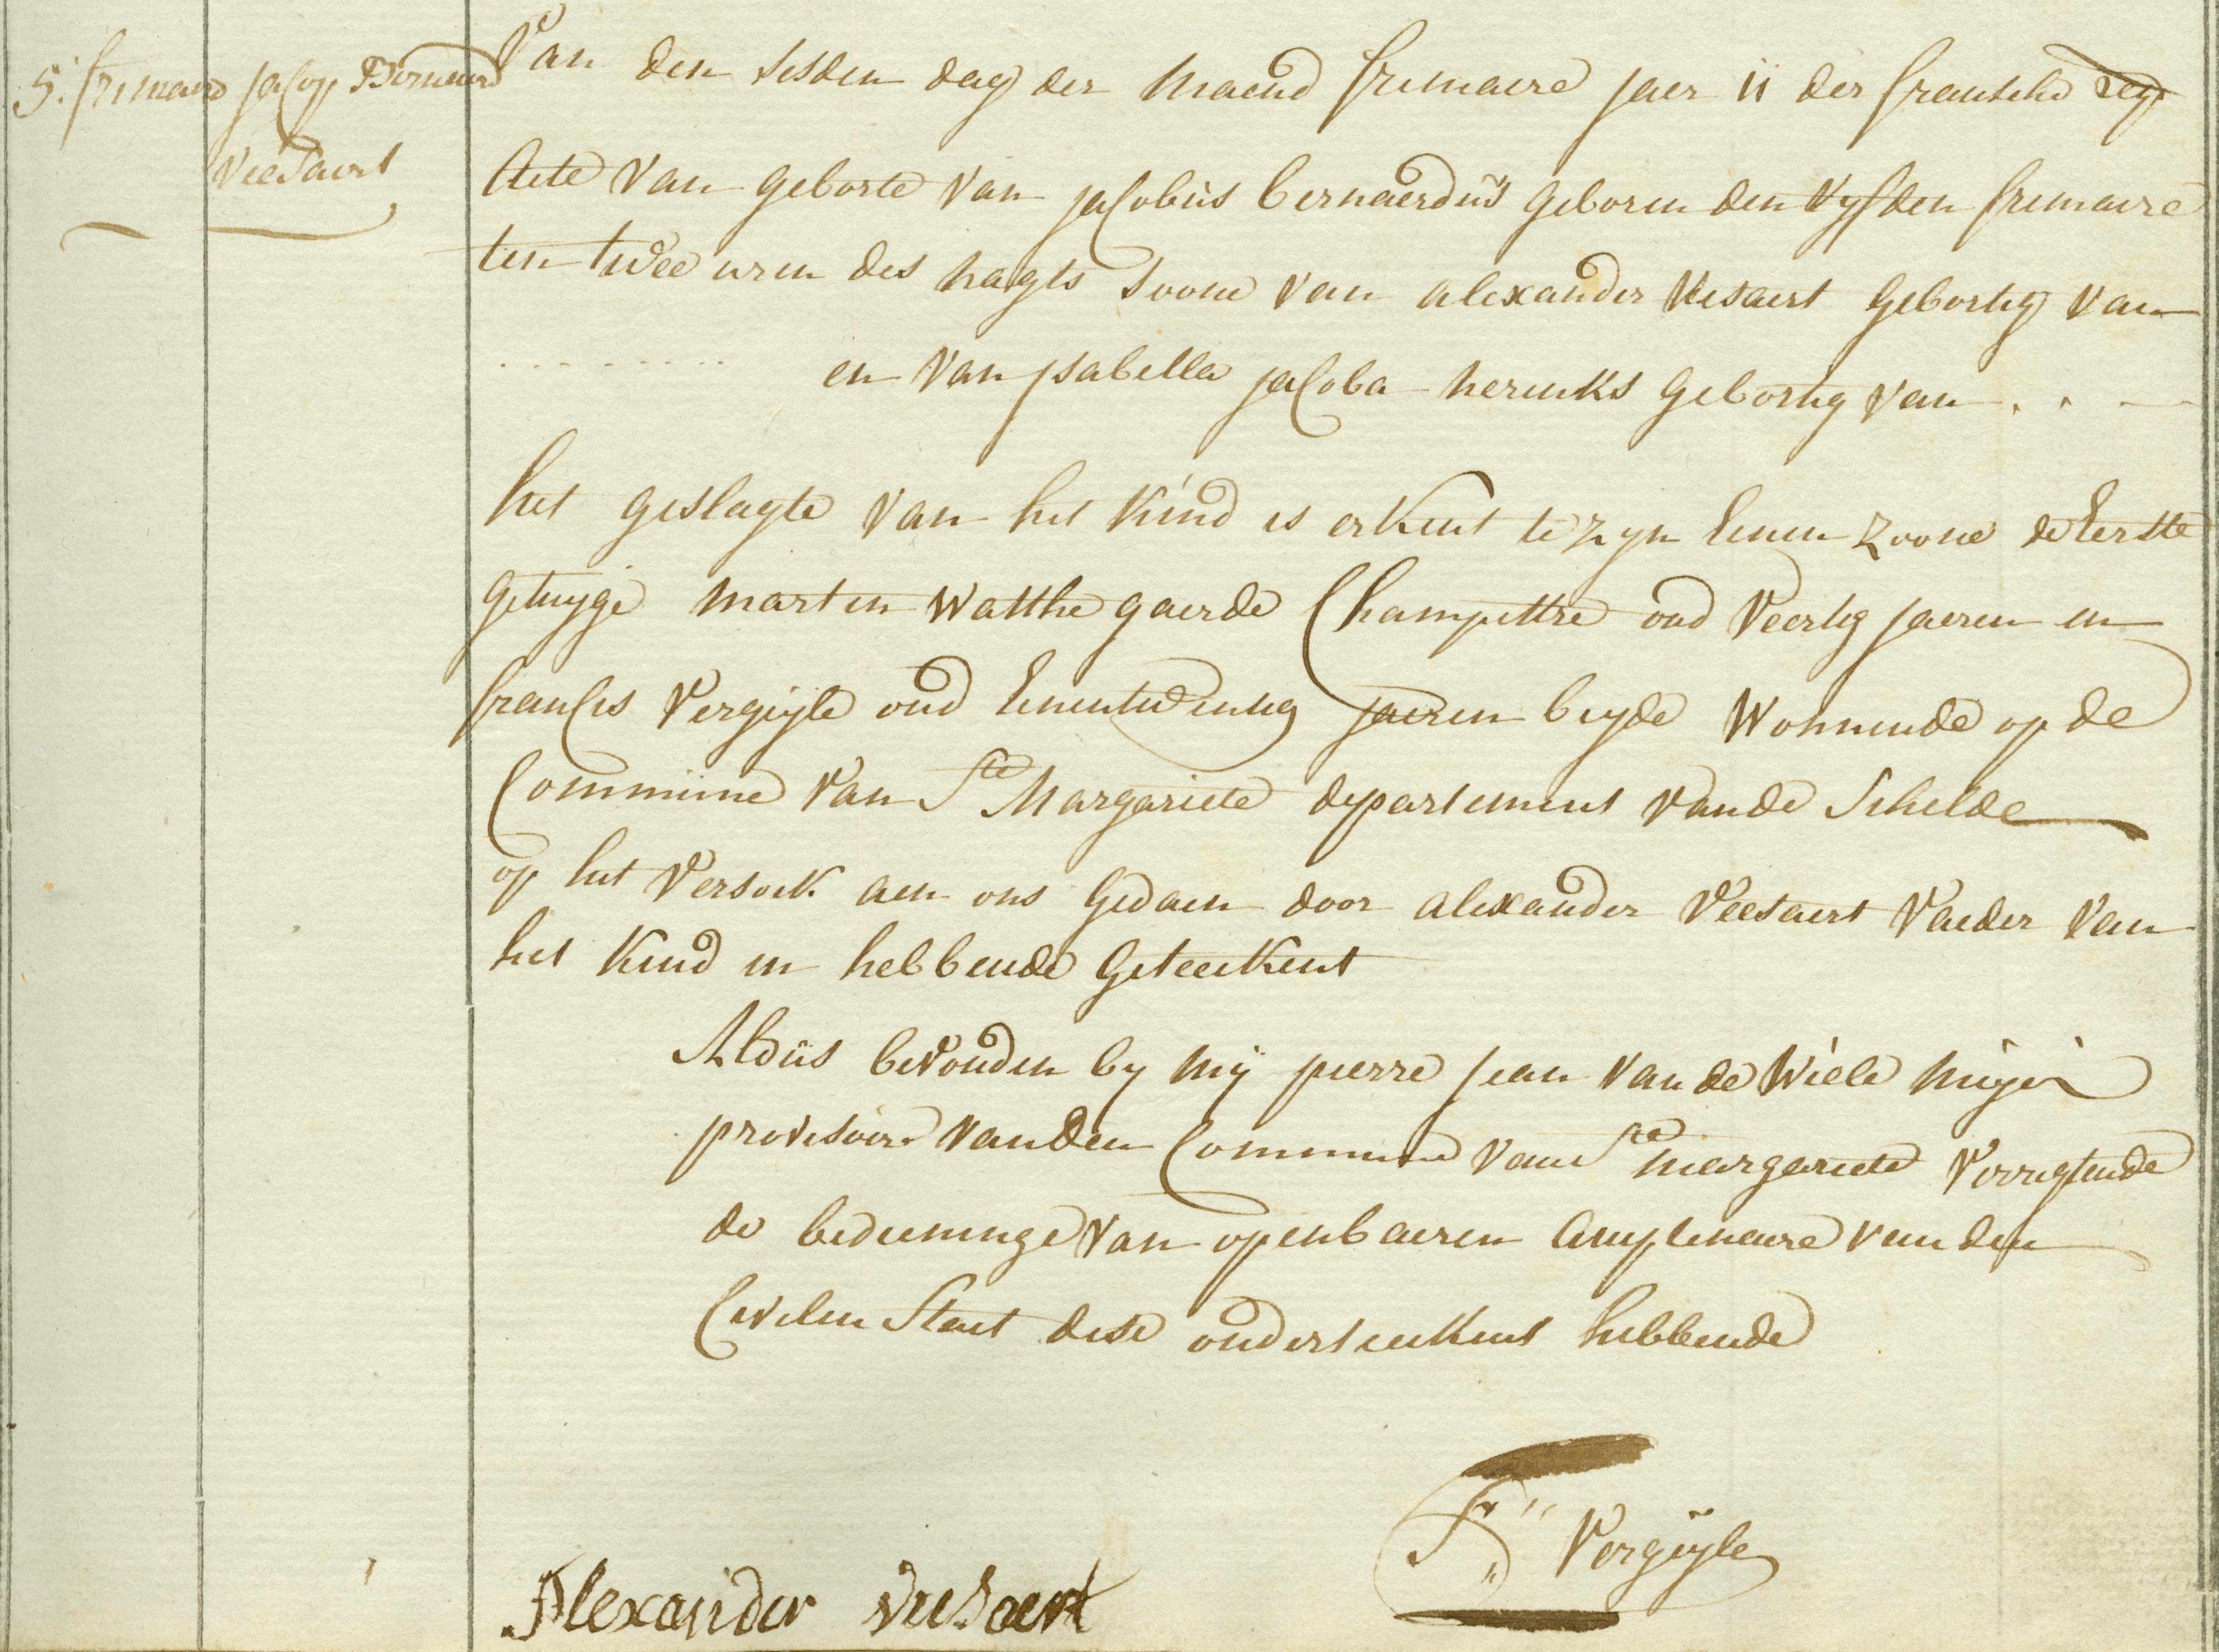 5. frimaire Jacop Bernaerd
Veesaert
Van den sesden dag der maend frimaire jaer 11 der fransche rep
Acte van geborte van jacobus bernaerdus geboren den vyfden frimaire
ten twee uren des nagts soone van alexander Vesaert gebortig van
. . . . . . . . . en van ysabella jacoba herinks gebortig van . . —
het geslagte van het kind is erkent te zyn eenen zoone de eerste
getuyge marten Watthe gaerde Champettre oud Veertig jaeren en
francis Vergijle oud eenentwentig jaeren beyde Wonnende op de
Commune van Ste Margariete departement vande Schelde
op het Versoek aen ons gedaen door alexander Veesaert Vaeder van
het kind en hebbende geteekent
Aldus bevonden by mij pierre jean van de Wiele
provisoir vanden Commune van Ste margariete Verrigtende
de bedieninge van openbaeren Amptenaere van den
Civilen Staet dese onderteekent hebbende
F.D Vergijle
Alexander Veesaert